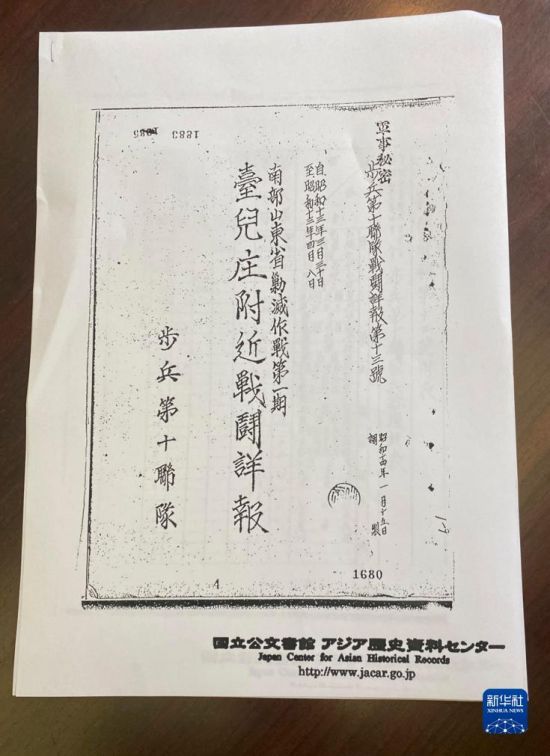 軍事秘密
歩兵第十聯隊戰鬪詳報第十三號
自昭和十三年三月三十日
至昭和十三年四月八日
南部山東省勦滅作戰第一期
臺兒庄附近戰鬪詳報
歩兵第十聯隊
昭和十四年一月十五日
調製
1883
1680
国立公文書館 アジア歴史資料センター
Japan Center for Asian Historical Records
http://www.jacar.go.jp
新华社
XINHUA NEWS